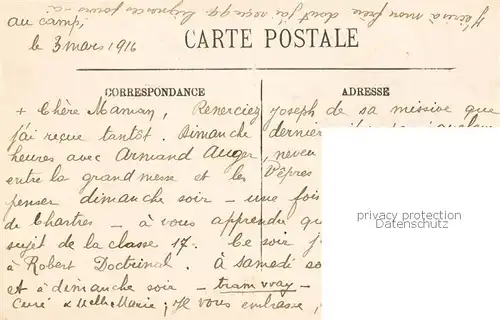 J'écris à mon frère dont j'ai reçu qq. lignes ces jours-ci
au camp,
le 3 mars 1916
CARTE POSTALE
CORRESPONDANCE
ADRESSE
+ Chère Maman, Remerciez Joseph de sa missive que
j'ai reçue tantôt. Dimanche dernier
heures avec Armand Auger, neveu
entre la grand messe et les Vêpres
penser dimanche soir - une fois
de Chartres - à vous apprendre
sujet de la classe 17. Ce soir
à Robert Doctrinal. à samedi
et à dimanche soir - tramway -
Curé & Melle Marie; Je vous embrasse,
privacy protection
Datenschutz